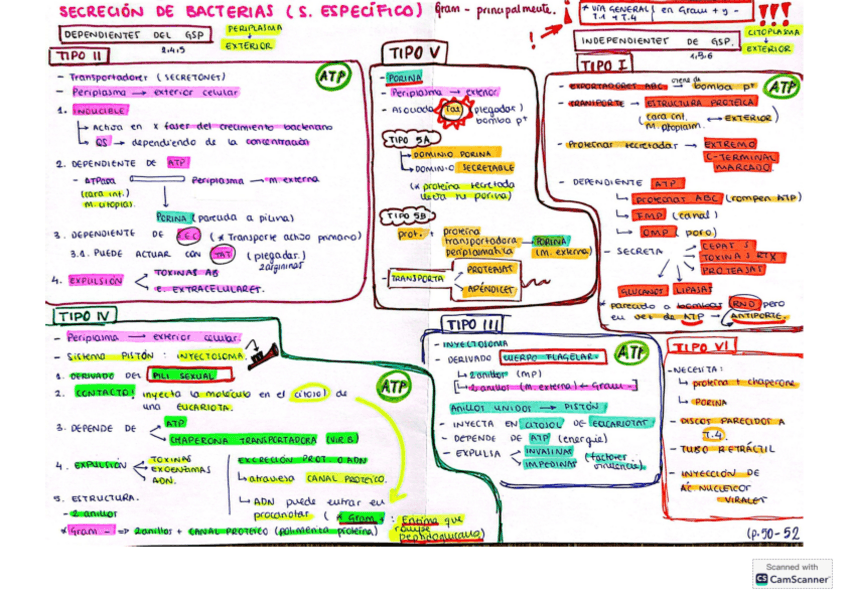 SECRECIÓN DE BACTERIAS (S. ESPECÍFICO) Gram - principalmente.
* VÍA GENERAL en Gram + y -
T.1 y T.4
DEPENDIENTES DEL GSP
2.4.5
PERIPLASMA
EXTERIOR
INDEPENDIENTES DE GSP.
1.3.6
CITOPLASMA
EXTERIOR
TIPO II
ATP
- Transportadores (SECRETONES)
- Periplasma → exterior celular
1. INDUCIBLE
↳ Activa en x fases del crecimiento bacteriano
↳ QS → dependiendo de la concentración
2. DEPENDIENTE DE ATP
- ATPasa Periplasma → M. externa
(cara int.)
M. citoplas.
PORINA (parecida a pilina)
3. DEPENDIENTE DE SEC (* Transporte activo primario)
3.1. PUEDE ACTUAR CON TAT (plegadas)
2 argininas
4. EXPULSIÓN
TOXINAS AB
e. EXTRACELULARES.
TIPO V
- PORINA
- Periplasma → exterior
- Asociada Tat (plegadas)
bomba p+
TIPO 5A
↳ DOMINIO PORINA
↳ DOMINIO SECRETABLE
(* proteína secretada
lleva su porina)
TIPO 5B
prot. + proteína
transportadora → PORINA
periplasmática (M. externa)
- TRANSPORTA
PROTEÍNAS
APÉNDICES
TIPO I
ATP
- EXPORTADORES ABC → bomba p+
- TRANSPORTE → ESTRUCTURA PROTEICA
(cara int. ↔ EXTERIOR)
M. citoplasm.
- Proteínas secretadas → EXTREMO
C-TERMINAL
MARCADO.
- DEPENDIENTE ATP
↳ PROTEÍNAS ABC (rompen ATP)
↳ FMP (canal)
↳ OMP (poro)
- SECRETA
CEPAS S
TOXINAS RTX
PROTEASAS
GLUCANOS LIPASAS
* parecido a bombas RND pero
en vez de ATP → ANTIPORTE.
TIPO IV
- Periplasma → exterior celular
- Sistema PISTÓN: INYECTOSOMA.
1. DERIVADO DEL PILI SEXUAL
ATP
2. CONTACTO! inyecta la molécula en el citosol de
una EUCARIOTA.
3. DEPENDE DE
ATP
CHAPERONA TRANSPORTADORA (VIR B)
4. EXPULSIÓN
TOXINAS
EXOENZIMAS
ADN.
EXCRECIÓN PROT. O ADN
↳ atraviesa CANAL PROTEICO.
↳ ADN puede entrar en
procariotas (* Gram + : Enzima que
rompe
peptidoglucano)
5. ESTRUCTURA.
- 2 anillos
* Gram - => 2 anillos + CANAL PROTEICO (polimeriza proteína)
TIPO III
- INYECTOSOMA
- DERIVADO CUERPO FLAGELAR.
ATP
↳ 2 anillos (MP)
↳ 2 anillos (M. externa) ← Gram -
ANILLOS UNIDOS → PISTÓN
- INYECTA EN CITOSOL DE EUCARIOTAS.
- DEPENDE DE ATP (energía)
- EXPULSIA
INVASINAS
IMPEDINAS
(factores
virulencia)
TIPO VI
- NECESITA:
↳ proteína + chaperone
↳ PORINA
- DISCOS PARECIDOS A
T.4.
- TUBO RETRÁCTIL
- INYECCIÓN DE
ÁC NUCLEICOS
VIRALES
(p. 50-52
Scanned with
CS CamScanner